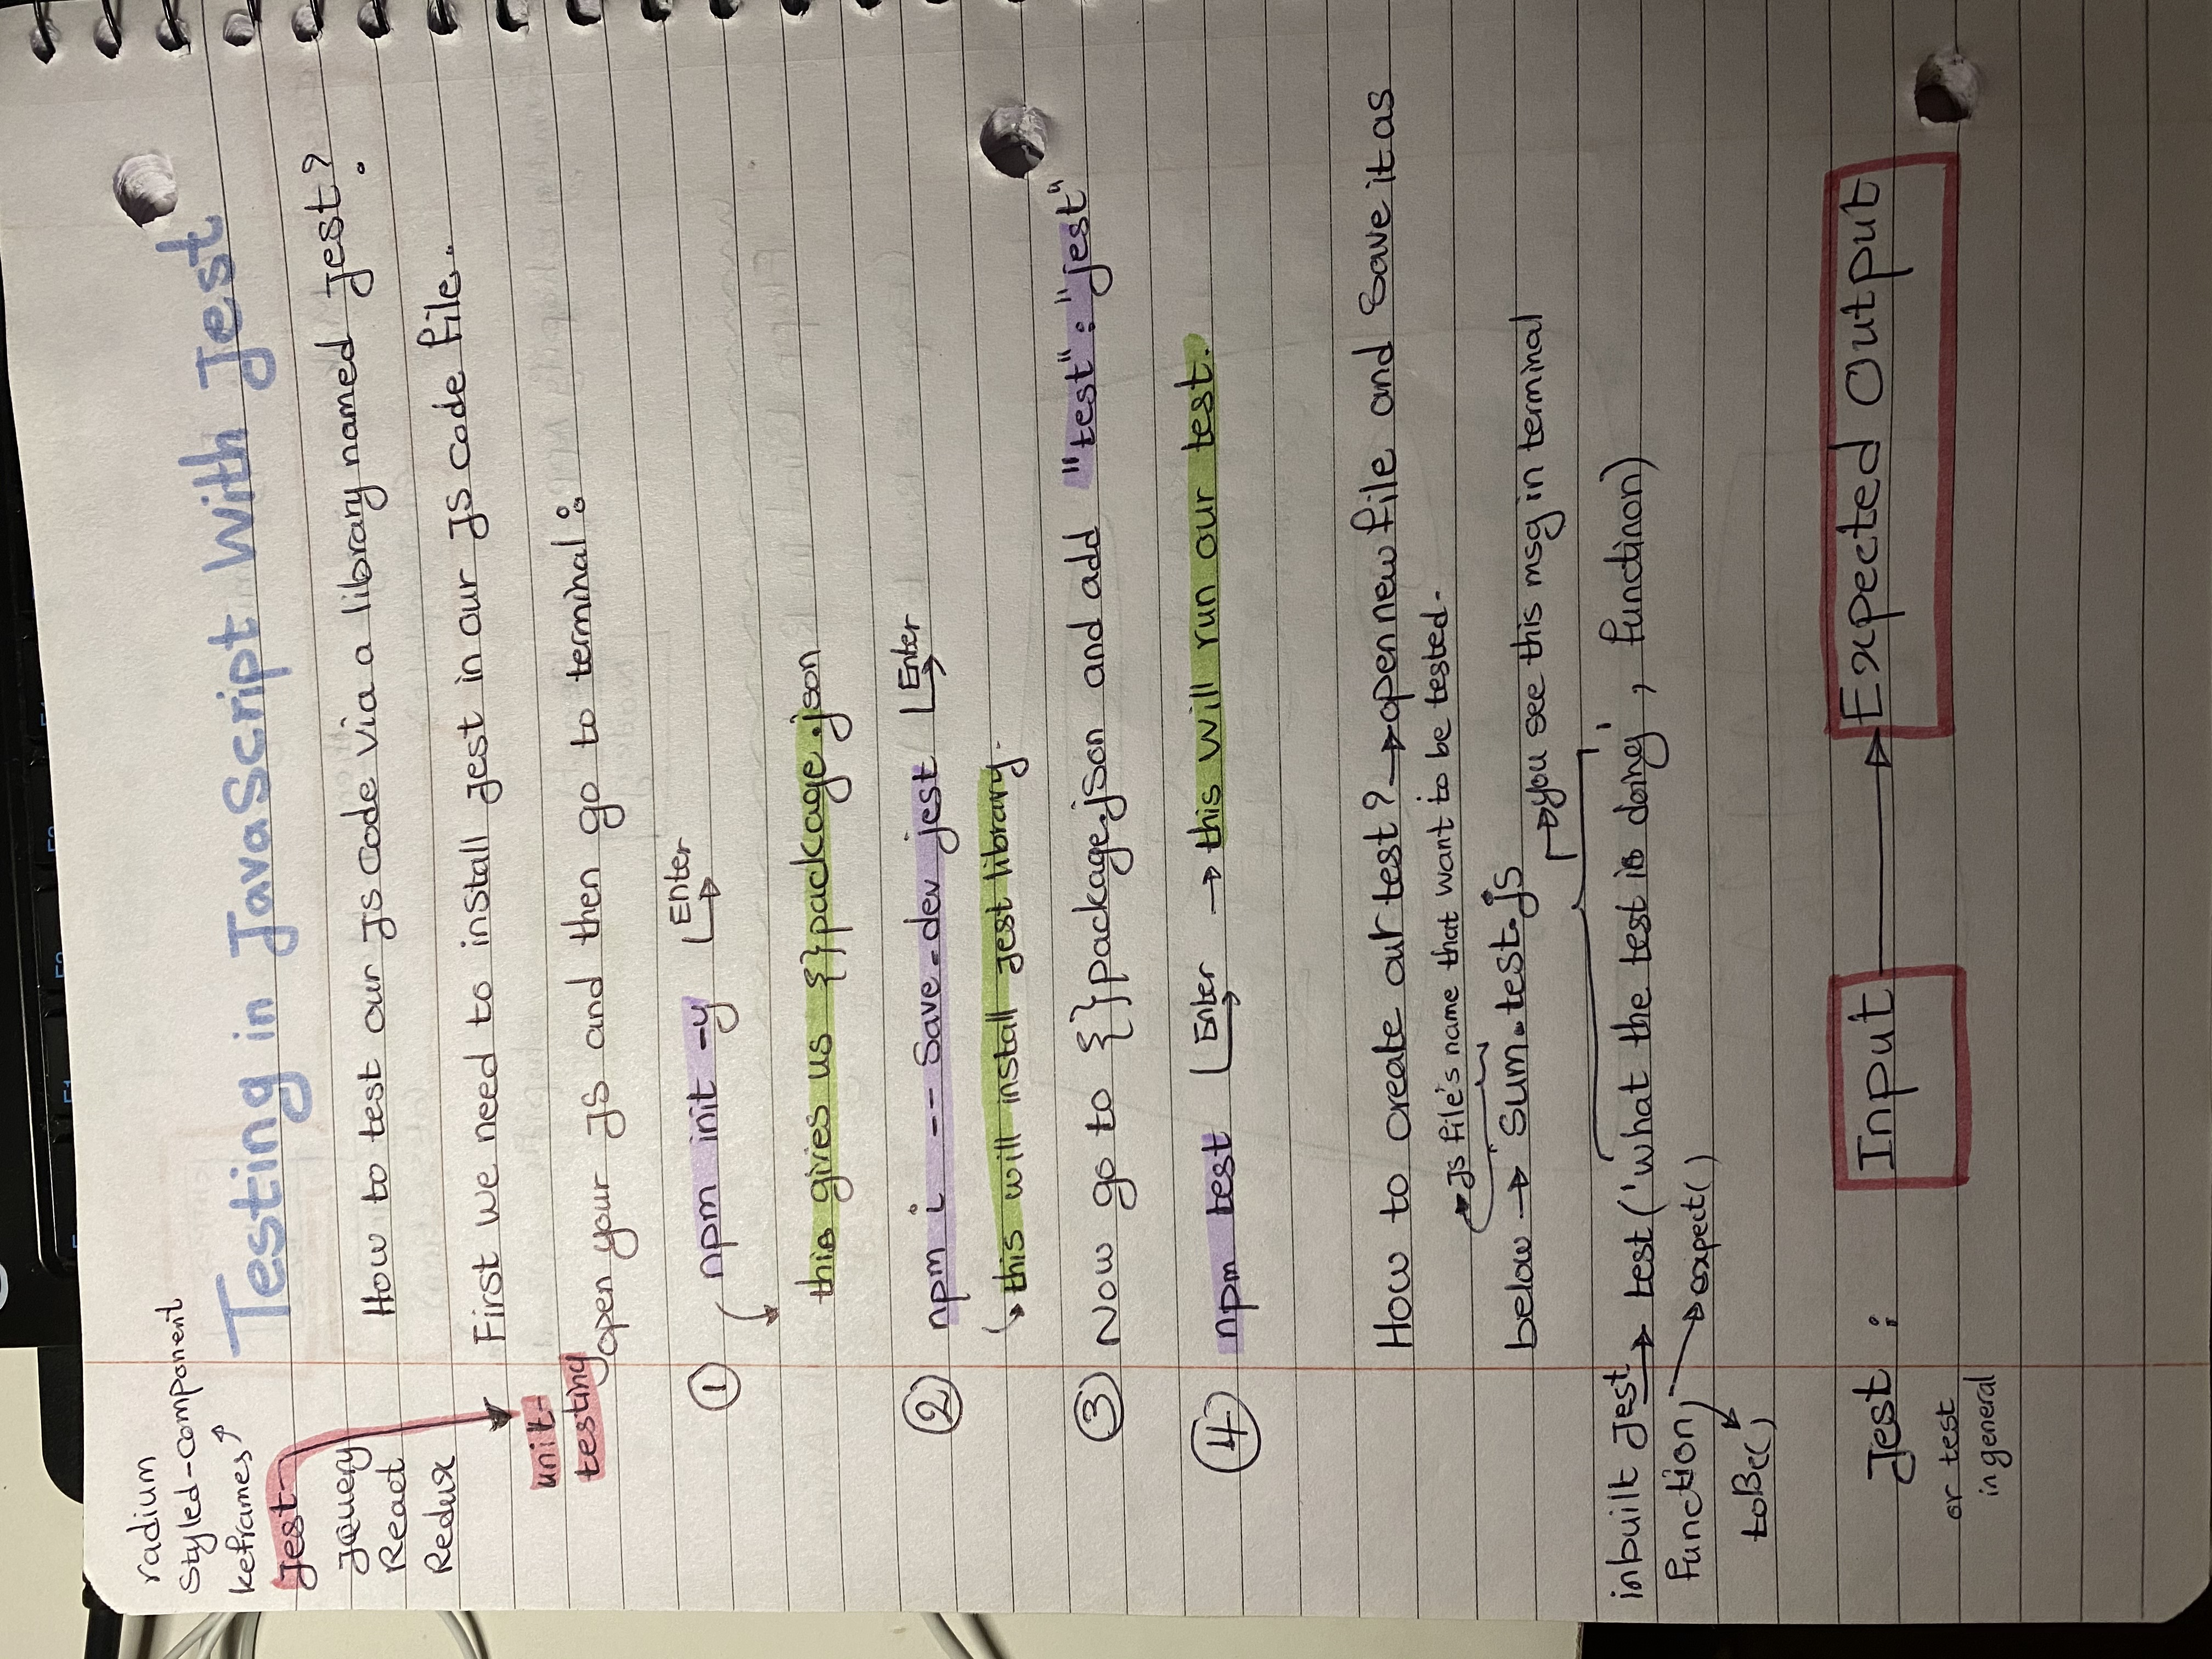 radium
Styled-Component
keframes
Jest
JQuery
React
Redux
unit-
testing
Testing in JavaScript With Jest
How to test our JS Code via a library named Jest?
First we need to install Jest in our JS code file.
open your JS and then go to terminal :
① npm init -y Enter
this gives us {}package.json
② npm i -- Save-dev jest Enter
this will install jest library.
③ Now go to {}package.json and add "test" : "jest"
④ npm test Enter → this will run our test.
How to create our test? → open new file and Save it as
JS file's name that want to be tested.
below → sum.test.js
you see this msg in terminal
inbuilt Jest → test('what the test is doing', functinon)
function → expect()
toBe()
Jest : Input → Expected Output
or test
in general